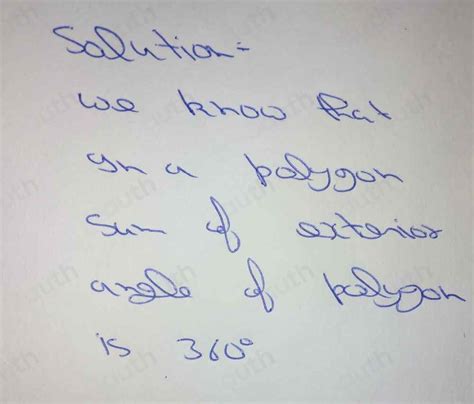 Solution =
we know that
In a polygon
sum of exterior
angle of polygon
is 360°